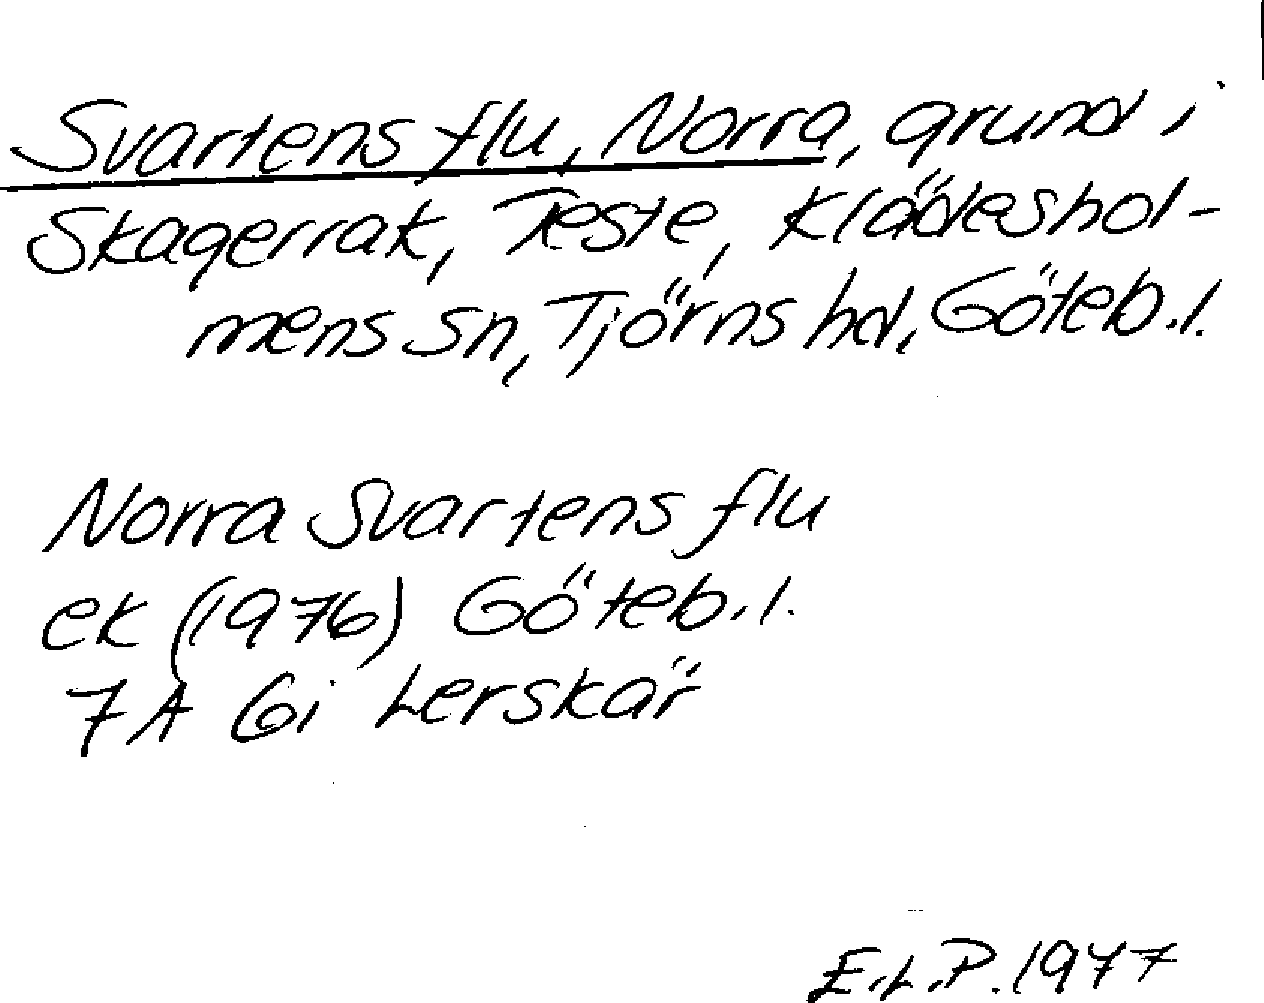 Svartens flu, Norra, grund i
Skagerrak, Teste, Klädeshol-
mens sn, Tjörns hd, Göteb.l.
Norra Svartens flu
ek (1976) Göteb.l.
7A 6i Lerskär
E.L.P. 1977